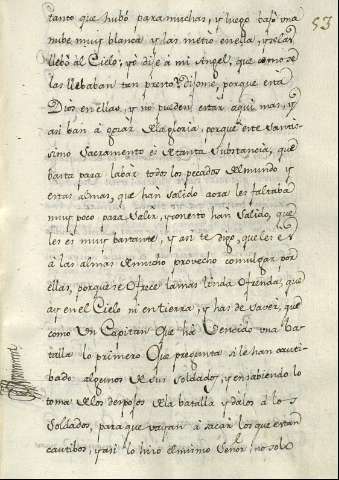 53
tanto que hubo para muchas, y luego bajo vna
nube muy blanca y las metio en ella, y se las
llebó al Cielo; yo dije a mi Angel, que como se
las llebaban tan presto? Dijome, porque està
Dios en ellas, y no pueden estar aqui mas, y
asi ban à goçar de la gloria, porque este santis-
simo Sacramento es de tanta substancia, que
basta para labar todos los pecados del mundo y
estas almas, que han salido aora les faltaba
muy poco para salir, y con esto han salido, que
les es muy bastante, y asi te digo, que les es
à las almas de mucho provecho comulgar por
ellas, porque se ofrece la mas linda ofrenda, que
ay en el Cielo ni en tierra, y has de saver, que
como Vn Capitan que ha Vencido vna Ba-
talla lo primero Que pregunta si le han cauti-
bado algunos de sus soldados, y en sabiendo lo
toma de los despojos de la batalla y dalos à los
Soldados, para que vayan à sacar los que estan
cautibos, y asi lo hizo el mismo Señor, no solo